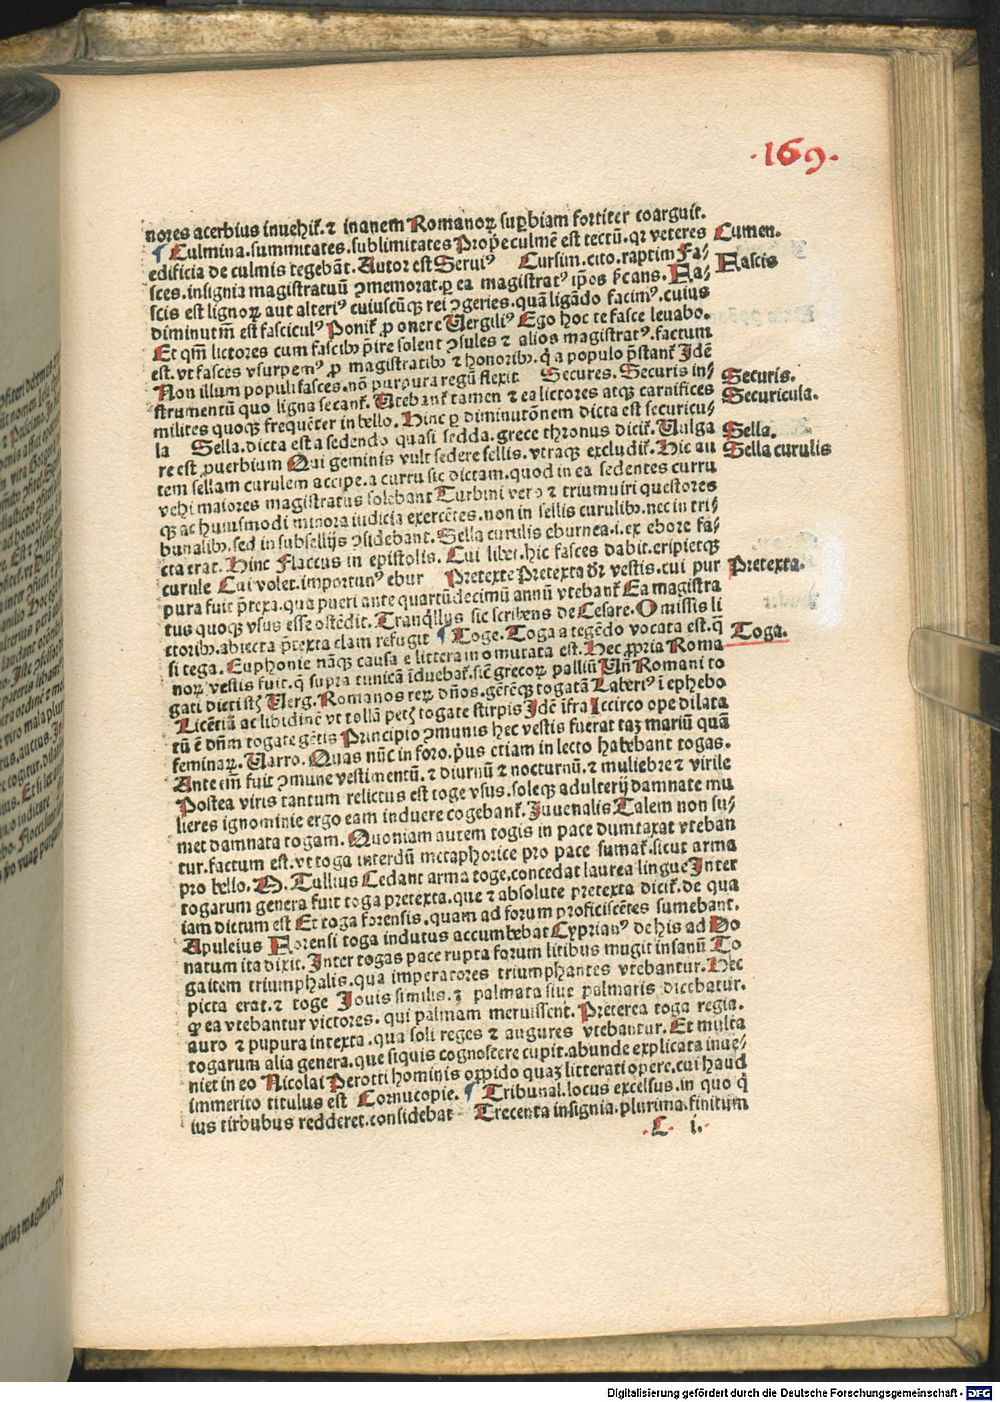 ·169·
nores acerbius inuehit᷒. ⁊ inanem Romanoꝝ supbiam fortiter coarguit.
¶ Culmina. summitates. sublimitates Prop̄e culmē est tectū. qꝛ veteres
Cumen.
edificia de culmis tegebāt. Autor est Seruiꝰ Cursim. cito. raptim Fa⸗
Fascis
sces. insignia magistratuū ꝯmemorat. ꝑ ea magistratꝰ ip̄os p̄cans. Fa⸗
scis est lignoꝝ aut alteriꝰ cuiuscūqꝫ rei ꝯgeries. quā ligādo facimꝰ. cuius
diminutiū est fasciculꝰ Ponit᷒ ꝓ onere Uergiliꝰ Ego hoc te fasce leuabo.
Et qm̄ lictores cum fascibꝫ p̄ire solent ꝯsules ⁊ alios magistratꝰ. factum
est. vt fasces vsurpemꝰ ꝓ magistratibꝫ ⁊ honoribꝫ. q̄ a populo p̄stant᷒ Idē
Non illum populi fasces. nō purpura regū flexit Secures. Securis in⸗
Securis.
strumentū quo ligna secant᷒. Utebant᷒ tamen ⁊ ea lictores atqꝫ carnifices
Securicula.
milites quoqꝫ frequēter in bello. Hinc ꝑ diminutōnem dicta est securicu⸗
la Sella. dicta est a sedendo quasi sedda. grece thronus dicit᷒. Uulga
Sella.
re est ꝓuerbium Qui geminis vult sedere sellis. vtraqꝫ excludit᷒. Hic au
Sella curulis
tem sellam curulem accipe. a curru sic dictam. quod in ea sedentes curru
vehi maiores magistratus solebant Turbini vero ⁊ triumuiri questores
qꝫ ac huiusmodi minora iudicia exercētes. non in sellis curulibꝫ. nec in tri⸗
bunalibꝫ. sed in subsellijs ꝯsidebant. Sella curulis eburnea. i. ex ebore fa⸗
cta erat. Hinc Flaccus in epistolis. Cui libet. hic fasces dabit. eripietqꝫ
curule Cui volet. importunꝰ ebur Pretexte Pretexta dr̄ vestis. cui pur
Pretexta.
pura fuit p̄texa. qua pueri ante quartūdecimū annū vtebant᷒ Ea magistra
tus quoqꝫ vsus esse ostēdit. Tranqꝉlꝰ sic scribens de Cesare. Omissis li
ctoribꝫ. abiecta p̄texta clam refugit ¶ Toge. Toga a tegēdo vocata est. q̄
Toga.
si tega. Euphonie nāqꝫ causa e littera in o mutata est. Hec ꝓpria Roma
noꝝ vestis fuit. q̄ supra tunicā īduebat᷒. sic̄ grecoꝝ palliū Uñ Romani to
gati dicti st̄ Uerg. Romanos reꝝ dños. gētēqꝫ togatā Laberiꝰ ī ephebo
Licētiā ac libidinē vt tollā petꝭ togate stirpis Idē īfra Iccirco ope dilata
tū ē dn̄m togate gētis Principio ꝯmunis hec vestis fuerat taꝫ mariū quā
feminaꝝ. Uarro. Quas nūc in foro. p̄us etiam in lecto habebant togas.
Ante em̄ fuit ꝯmune vestimentū. ⁊ diurnū ⁊ nocturnū. ⁊ muliebre ⁊ virile
Postea viris tantum relictus est toge vsus. soleqꝫ adulterij damnate mu
lieres ignominie ergo eam induere cogebant᷒. Juuenalis Talem non su⸗
met damnata togam. Quoniam autem togis in pace dumtaxat vteban
tur. factum est. vt toga interdū metaphorice pro pace sumat᷒. sicut arma
pro bello. M. Tullius Cedant arma toge. concedat laurea lingue Inter
togarum genera fuit toga pretexta. que ⁊ absolute pretexta dicit᷒. de qua
iam dictum est Et toga forensis. quam ad forum proficiscētes sumebant.
Apuleius Forensi toga indutus accumbebat Cyprianꝰ de his ad Do
natum ita dixit. Inter togas pace rupta forum litibus mugit insanū To
ga item triumphalis. qua imperatores triumphantes vtebantur. Hec
picta erat. ⁊ toge Jouis similis. ⁊ palmata siue palmaris dicebatur.
qꝫ ea vtebantur victores. qui palmam meruissent. Preterea toga regia.
auro ⁊ pupura intexta. qua soli reges ⁊ augures vtebantur. Et multa
togarum alia genera. que siquis cognoscere cupit. abunde explicata inue⸗
niet in eo Nicolai Perotti hominis oppido quaꝫ litterati opere. cui haud
immerito titulus est Cornucopie. ¶ Tribunal. locus excelsus. in quo q̇
ius tirbubus redderet. considebat Trecenta insignia. plurima. finitum
L i.
Digitalisierung gefördert durch die Deutsche Forschungsgemeinschaft - DFG